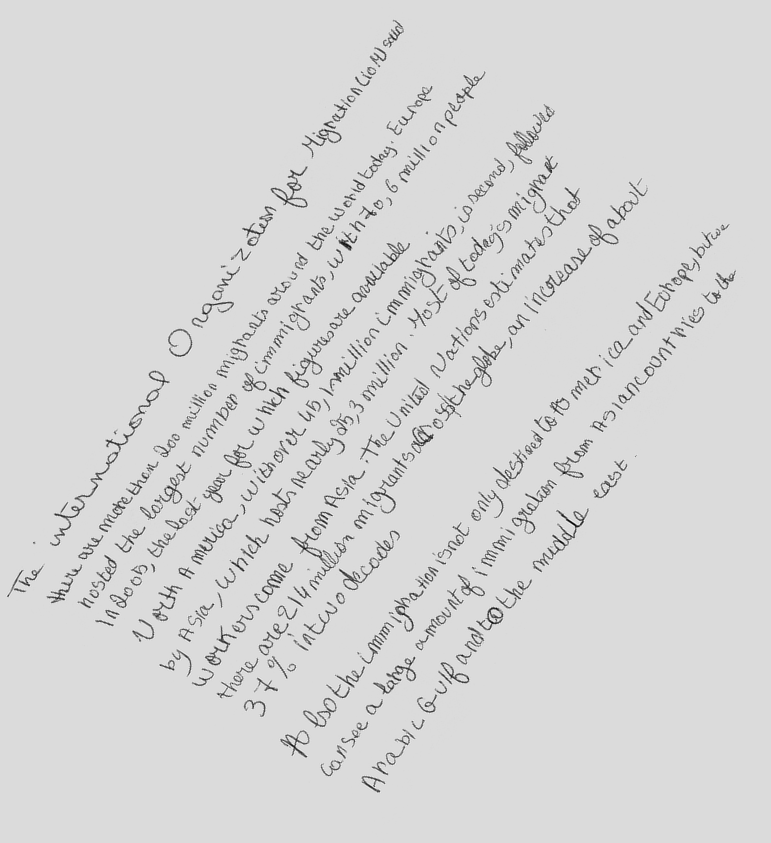 The international Organization for Migration (IOM) said
there are more than 200 million migrants around the world today. Europe
hosted the largest number of immigrants, with 70,6 million people
in 2005, the last year for which figures are available
North America, with over 45,1 million immigrants, is second, followed
by Asia, which hosts nearly 25,3 million. Most of today's migrant
workers come from Asia. The United Nations estimates that
there are 214 million migrants across the globe, an increase of about
37% in two decades
Also the immigration is not only destined to America and Europe, but we
can see a large amount of immigration from Asian countries to the
Arabic Gulf and to the middle east.